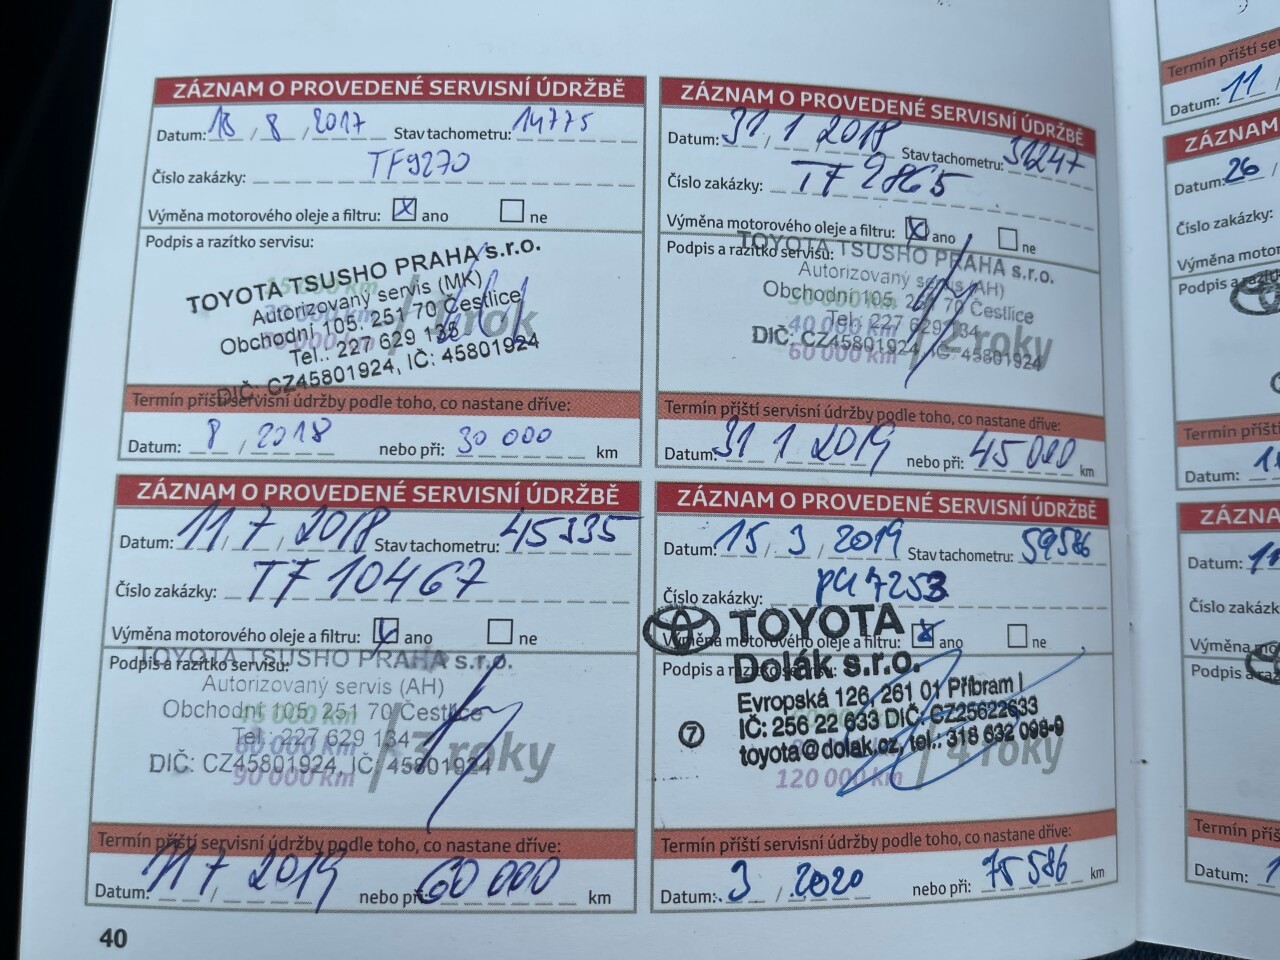 ZÁZNAM O PROVEDENÉ SERVISNÍ ÚDRŽBĚ
Datum: 18 / 8 / 2017 Stav tachometru: 14775
Číslo zakázky: TF9270
Výměna motorového oleje a filtru: x ano ne
Podpis a razítko servisu:
TOYOTA TSUSHO PRAHA s.r.o.
Autorizovaný servis (MK)
Obchodní 105, 251 70 Čestlice
Tel.: 227 629 135
DIČ: CZ45801924, IČ: 45801924
/ 1 rok
Termín příští servisní údržby podle toho, co nastane dříve:
Datum: 8 / 2018 nebo při: 30 000 km
ZÁZNAM O PROVEDENÉ SERVISNÍ ÚDRŽBĚ
Datum: 31 / 1 / 2018 Stav tachometru: 31247
Číslo zakázky: TF 2865
Výměna motorového oleje a filtru: x ano ne
Podpis a razítko servisu:
TOYOTA TSUSHO PRAHA s.r.o.
Autorizovaný servis (AH)
Obchodní 105, 251 70 Čestlice
Tel.: 227 629 134
DIČ: CZ45801924, IČ: 45801924
40 000 km
60 000 km
/ 2 roky
Termín příští servisní údržby podle toho, co nastane dříve:
Datum: 31 1 2019 nebo při: 45 000 km
ZÁZNAM O PROVEDENÉ SERVISNÍ ÚDRŽBĚ
Datum: 11 / 7 / 2018 Stav tachometru: 45335
Číslo zakázky: TF 10467
Výměna motorového oleje a filtru: ano ne
Podpis a razítko servisu:
TOYOTA TSUSHO PRAHA s.r.o.
Autorizovaný servis (AH)
Obchodní 105, 251 70 Čestlice
Tel.: 227 629 134
DIČ: CZ45801924, IČ: 45801924
45 000 km
60 000 km
90 000 km
/ 3 roky
Termín příští servisní údržby podle toho, co nastane dříve:
Datum: 11 / 7 / 2019 nebo při: 60 000 km
ZÁZNAM O PROVEDENÉ SERVISNÍ ÚDRŽBĚ
Datum: 15 / 3 / 2019 Stav tachometru: 59586
Číslo zakázky: 7253
Výměna motorového oleje a filtru: x ano ne
Podpis a razítko servisu:
TOYOTA
Dolák s.r.o.
Evropská 126, 261 01 Příbram I
IČ: 256 22 633 DIČ: CZ25622633
toyota@dolak.cz, tel.: 318 632 098-9
7
120 000 km
/ 4 roky
Termín příští servisní údržby podle toho, co nastane dříve:
Datum: 3 / 2020 nebo při: 75 586 km
40
Termín příští
Datum: 11 /
ZÁZNAM
Datum: 26 /
Číslo zakázky:
Výměna
Podpis a
Termín příští
Datum:
ZÁZNA
Datum:
Číslo zakázk
Výměna
Podpis a
Termín příš
Datum: